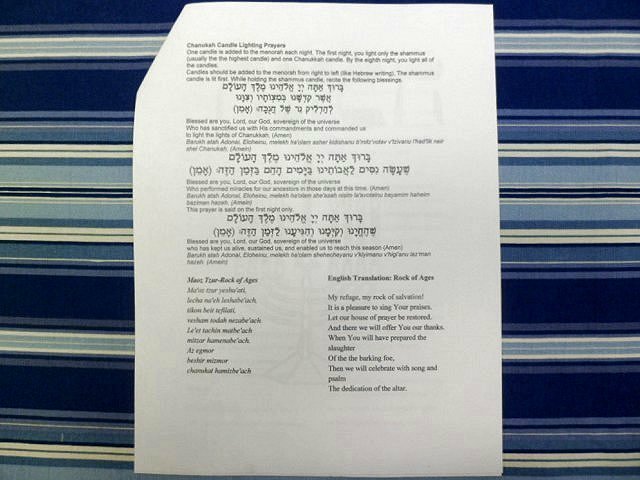 Chanukah Candle Lighting Prayers
One candle is added to the menorah each night. The first night, you light only the shammus
(usually the the highest candle) and one Chanukkah candle. By the eighth night, you light all of
the candles.
Candles should be added to the menorah from right to left (like Hebrew writing). The shammus
candle is lit first. While holding the shammus candle, recite the following blessings.
בָּרוּךְ אַתָּה יְיָ אֱלֹהֵינוּ מֶלֶךְ הָעוֹלָם
אֲשֶׁר קִדְּשָׁנוּ בְּמִצְוֹתָיו וְצִוָּנוּ
לְהַדְלִיק נֵר שֶׁל חֲנֻכָּה: (אָמֵן)
Blessed are you, Lord, our God, sovereign of the universe
Who has sanctified us with His commandments and commanded us
to light the lights of Chanukkah. (Amen)
Barukh atah Adonai, Eloheinu, melekh ha'olam asher kidishanu b'mitz'votav v'tzivanu l'had'lik neir
shel Chanukah. (Amein)
בָּרוּךְ אַתָּה יְיָ אֱלֹהֵינוּ מֶלֶךְ הָעוֹלָם
שֶׁעָשָׂה נִסִּים לַאֲבוֹתֵינוּ בַּיָּמִים הָהֵם בַּזְּמַן הַזֶּה: (אָמֵן)
Blessed are you, Lord, our God, sovereign of the universe
Who performed miracles for our ancestors in those days at this time. (Amen)
Barukh atah Adonai, Eloheinu, melekh ha'olam she'asah nisim la'avoteinu bayamim haheim
baziman hazeh. (Amein)
This prayer is said on the first night only.
בָּרוּךְ אַתָּה יְיָ אֱלֹהֵינוּ מֶלֶךְ הָעוֹלָם
שֶׁהֶחֱיָנוּ וְקִיְּמָנוּ וְהִגִּיעָנוּ לַזְּמַן הַזֶּה: (אָמֵן)
Blessed are you, Lord, our God, sovereign of the universe
who has kept us alive, sustained us, and enabled us to reach this season (Amen)
Barukh atah Adonai, Eloheinu, melekh ha'olam shehecheyanu v'kiyimanu v'higi'anu laz'man
hazeh. (Amein)
Maoz Tzur-Rock of Ages
Ma'oz tzur yeshu'ati,
lecha na'eh leshabe'ach,
tikon beit tefilati,
vesham todah nezabe'ach.
Le'et tachin matbe'ach
mitzar hamenabe'ach.
Az egmor
beshir mizmor
chanukat hamizbe'ach
English Translation: Rock of Ages
My refuge, my rock of salvation!
It is a pleasure to sing Your praises.
Let our house of prayer be restored.
And there we will offer You our thanks.
When You will have prepared the
slaughter
Of the the barking foe,
Then we will celebrate with song and
psalm
The dedication of the altar.